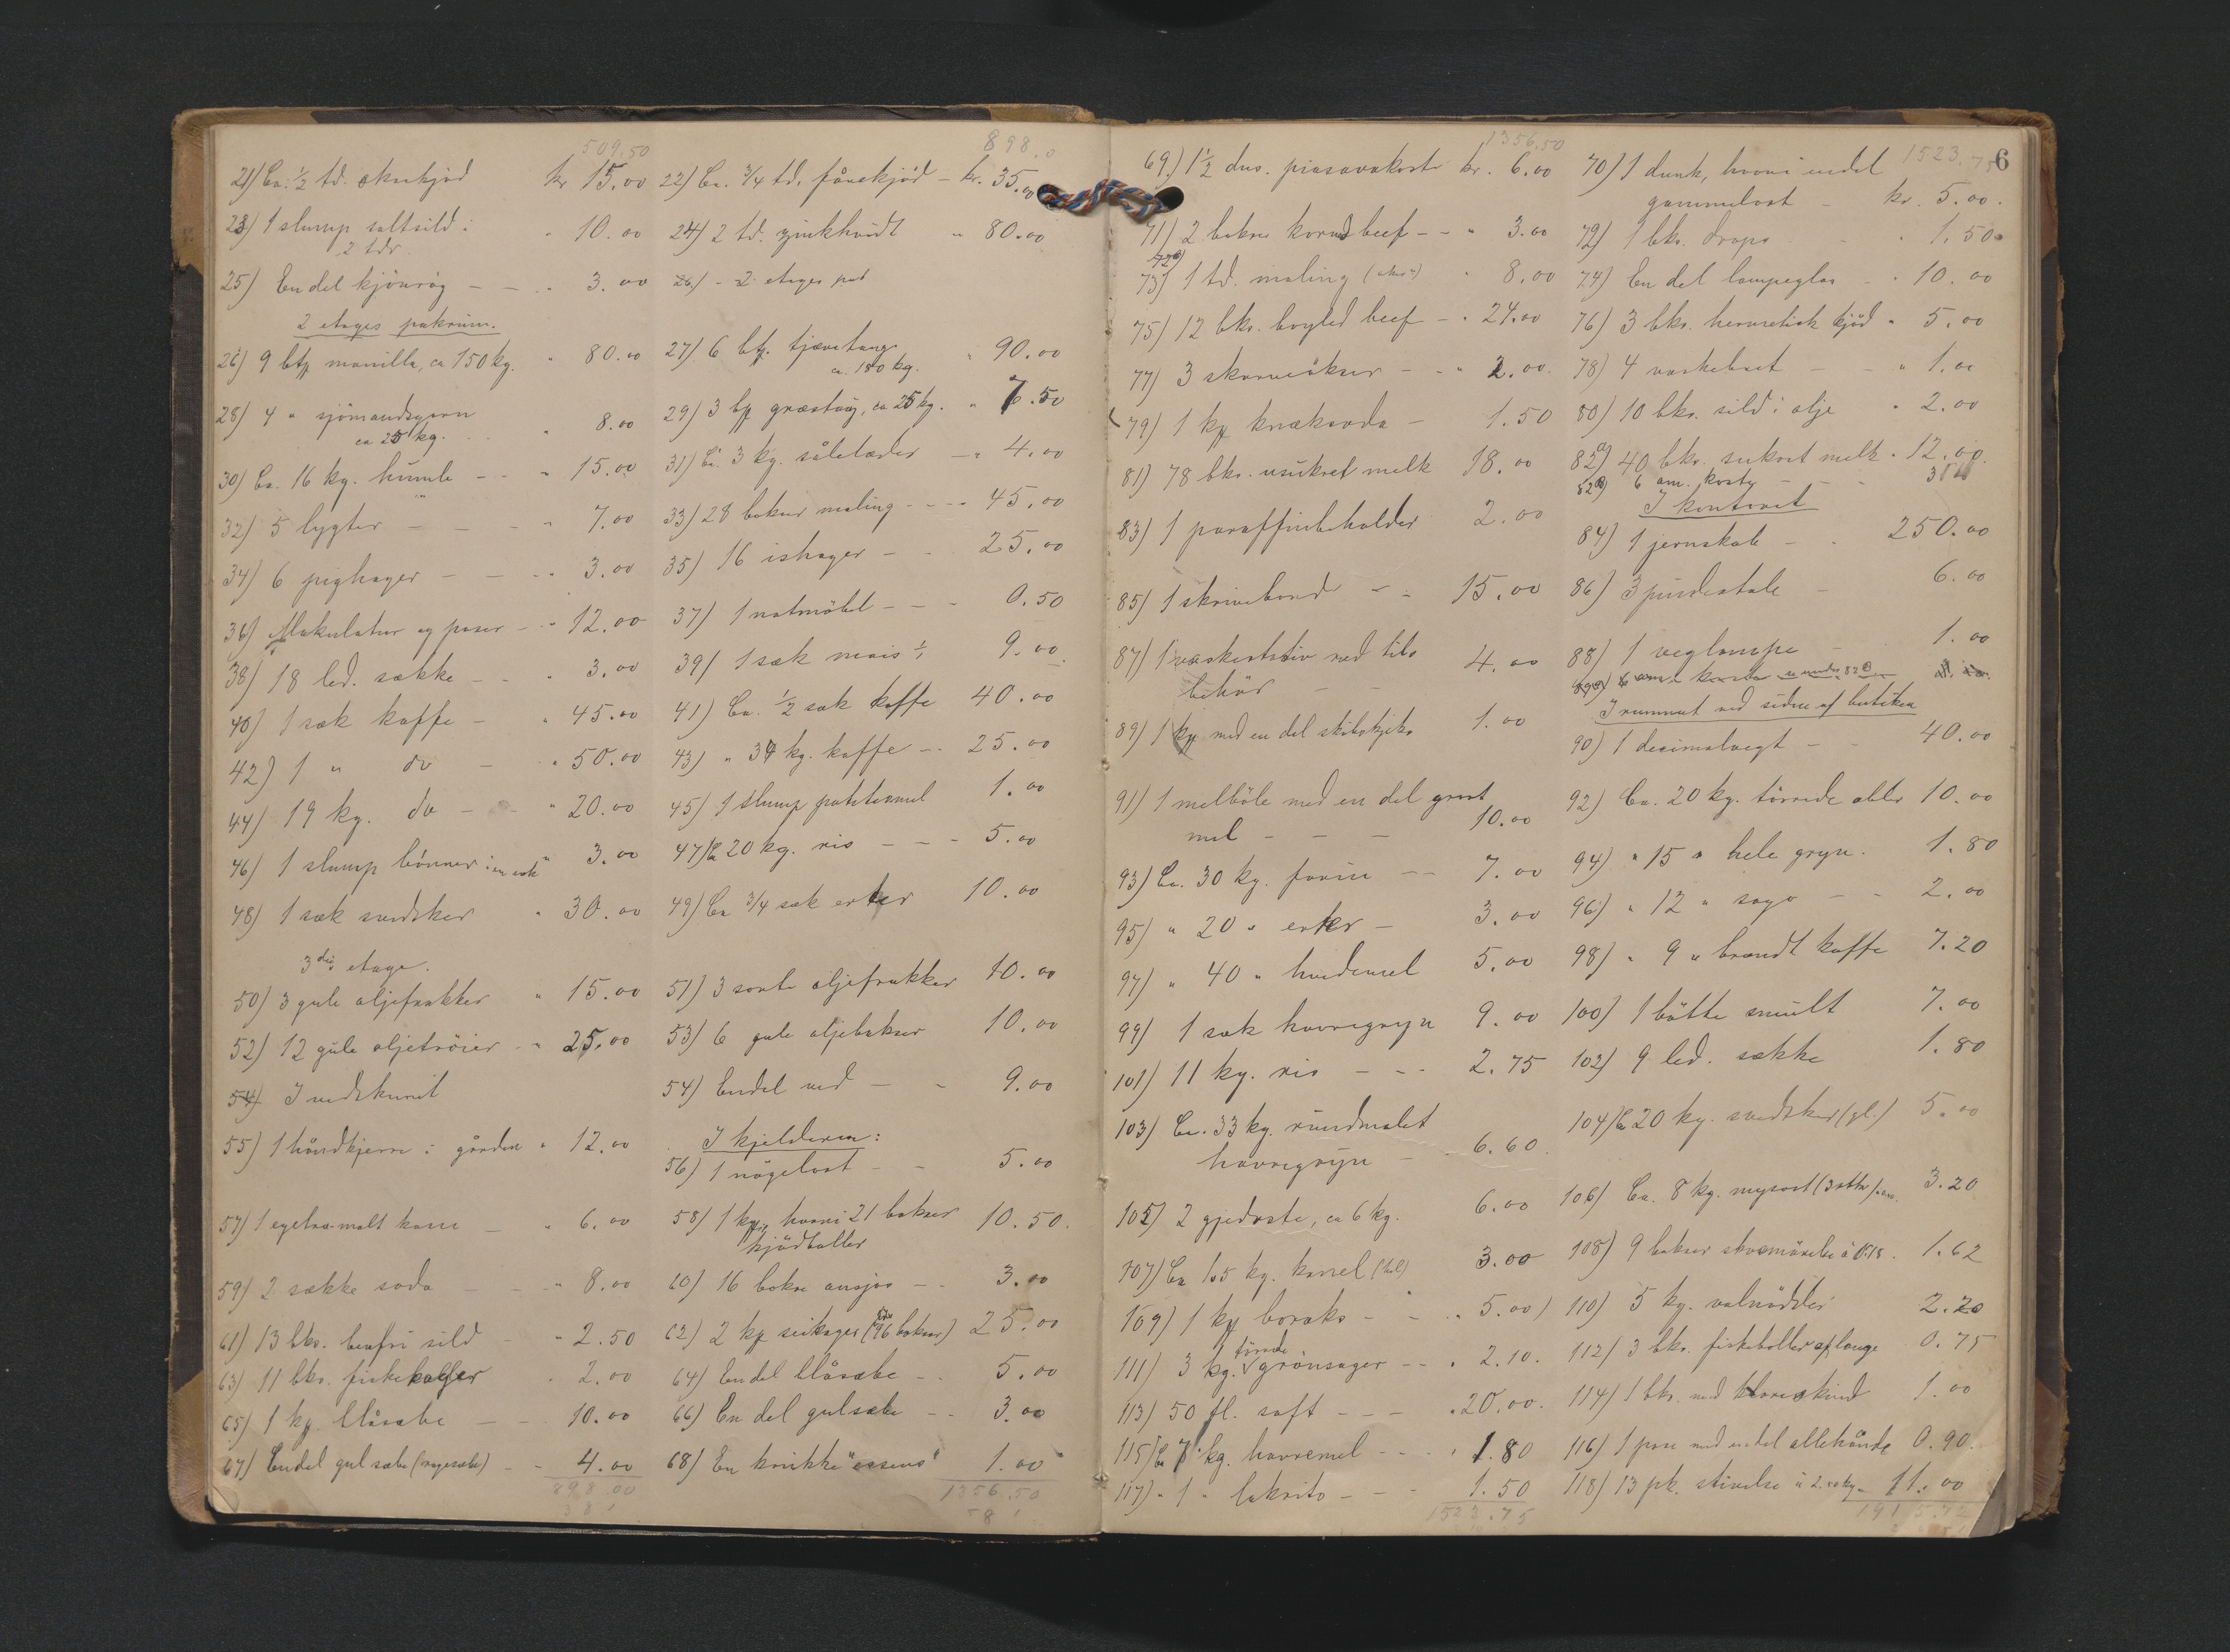 509.50
21) Ca. 1/2 td. oksekjød kr 15.00
23) 1 slump saltsild:
2 tdr. " 10.00
25) En del kjönrög - - " 3.00
2 etages pakrum.
26) 9 btp manilla, ca 150 kg. " 80.00
28) 4 " sjömandsgarn
ca 25 kg. " 8.00
30) Ca. 16 kg. humle - - " 15.00
32) 5 lygter - - - " 7.00
34) 6 pighager - - - " 3.00
36) Makulatur og poser - " 12.00
38) 18 led. sække - - " 3.00
40) 1 sæk kaffe - " 45.00
42) 1 " do - " 50.00
44) 19 kg. do - - " 20.00
46) 1 slump bönner i en sæk " 3.00
48) 1 sæk svedsker " 30.00
3die etage.
50) 3 gule oljefrakker " 15.00
52) 12 gule oljetröier " 25.00
54) I vedskuret
55) 1 håndkjerre i gården " 12.00
57) 1 egetræ-malt karre - " 6.00
59) 2 sække soda - - " 8.00
61) 13 bks. benfri sild - " 2.50
63) 11 bks. fiskekager " 2.00
65) 1 kp. blåsæbe - - 10.00
67) Endel gul sæbe - - 4.00
898.00
898.0
22) Ca. 3/4 td. fårekjød - kr. 35.00
24) 2 td. zinkhvidt " 80.00
26) - 2 etages pak
27) 6 btp. tjæretaug
ca. 180 kg. " 90.00
29) 3 bp græstaug, ca 25 kg. " 7.50
31) Ca. 3 kg. sålelæder - " 4.00
33) 28 bokser maling - - - 45.00
35) 16 ishager - - 25.00
37) 1 natmöbel - - - 0.50
39) 1 sæk mais 1/1 9.00
41) Ca. 1/2 sæk kaffe 40.00
43) " 34 kg. kaffe - - 25.00
45) 1 slump potetesmel 1.00
47) Ca 20 kg. ris - - - 5.00
49) Ca 3/4 sæk erter 10.00
51) 3 sorte oljefrakker 10.00
53) 6 gule oljebukser 10.00
54) Endel ved - - 9.00
I kjelderen:
56) 1 nögelost - - 5.00
58) 1 kp, hvori 21 bokser
kjödboller 10.50.
60) 16 bokse ansjos - - 3.00
62) 2 kp seikager (96 bokser) 25.00
64) Endel blåsæbe - . 5.00
66) En del gulsæbe - - 3.00
68) En krukke "essens" 1.00
1356.50
1356.50
69) 1 1/2 dus. piasavakoste kr. 6.00
71) 2 bokser korned beef - - " 3.00
72a)
73) 1 td. maling " 8.00
75) 12 bks. boyled beef - " 24.00
77) 3 skarveökser - - " 2.00
79) 1 kp knæksoda - 1.50
81) 78 bks. usukret melk 18.00
83) 1 paraffinbeholder 2.00
85) 1 skrivebord - - 15.00
87) 1 vaskestativ med til-
behör - - 4.00
89) 1 kp med en del skibskjeks 1.00
91) 1 melböle med en del grovt
mel - - - 10.00
93) Ca. 30 kg. farin - - 7.00
95) " 20 " erter - 3.00
97) " 40 " hvedemel 5.00
99) 1 sæk havregryn 9.00
101) 11 kg. ris - - - 2.75
103) Ca. 33 kg. rundmalet
havregryn - - 6.60
105) 2 gjedoste, ca 6 kg. 6.00
107) Ca 1.5 kg. kanel (hel) 3.00
109) 1 kp boraks - - " 5.00)
111) 3 kg. törrede grönsager - - " 2.10.
113) 50 fl. saft - - - " 20.00.
115) Ca 7 kg. havremel - - - 1.80
117) " 1 " lakrits - - - 1.50
1523.75
1523.75
6
70) 1 dunk, hvori endel
gammelost - kr. 5.00.
72) 1 bks. drops " 1.50
74) En del lampeglas - " 10.00
76) 3 bks. hermetisk kjöd " 5.00
78) 4 vaskebræt - - " 1.00
80) 10 bks. sild i olje " 2.00
82a) 40 bks. sukret melk " 12.00.
82b) 6 am. koste - - -
I kontoret
84) 1 jernskab - - 250.00
86) 3 pindestole - 6.00
88) 1 veglampe - 1.00
I rummet ved siden af butiken
90) 1 decimalvegt - - 40.00
92) Ca. 20 kg. törrede æbler 10.00
94) " 15 " hele gryn. 1.80
96) " 12 " sago - - 2.00
98) " 9 " brændt kaffe 7.20
100) 1 bötte smult 7.00
102) 9 led. sække 1.80
104) Ca 20 kg. svedsker (gl.) 5.00
106) Ca. 8 kg. mysost 3.20
108) 9 bokser à 0.18. 1.62
110) 5 kg. valnödder 2.20
112) 3 bks. fiskeboller aflange 0.75
114) 1 bks. med klareskind 1.00
116) 1 pose med endel allehånde 0.90.
118) 13 pk. stivelse 11.00